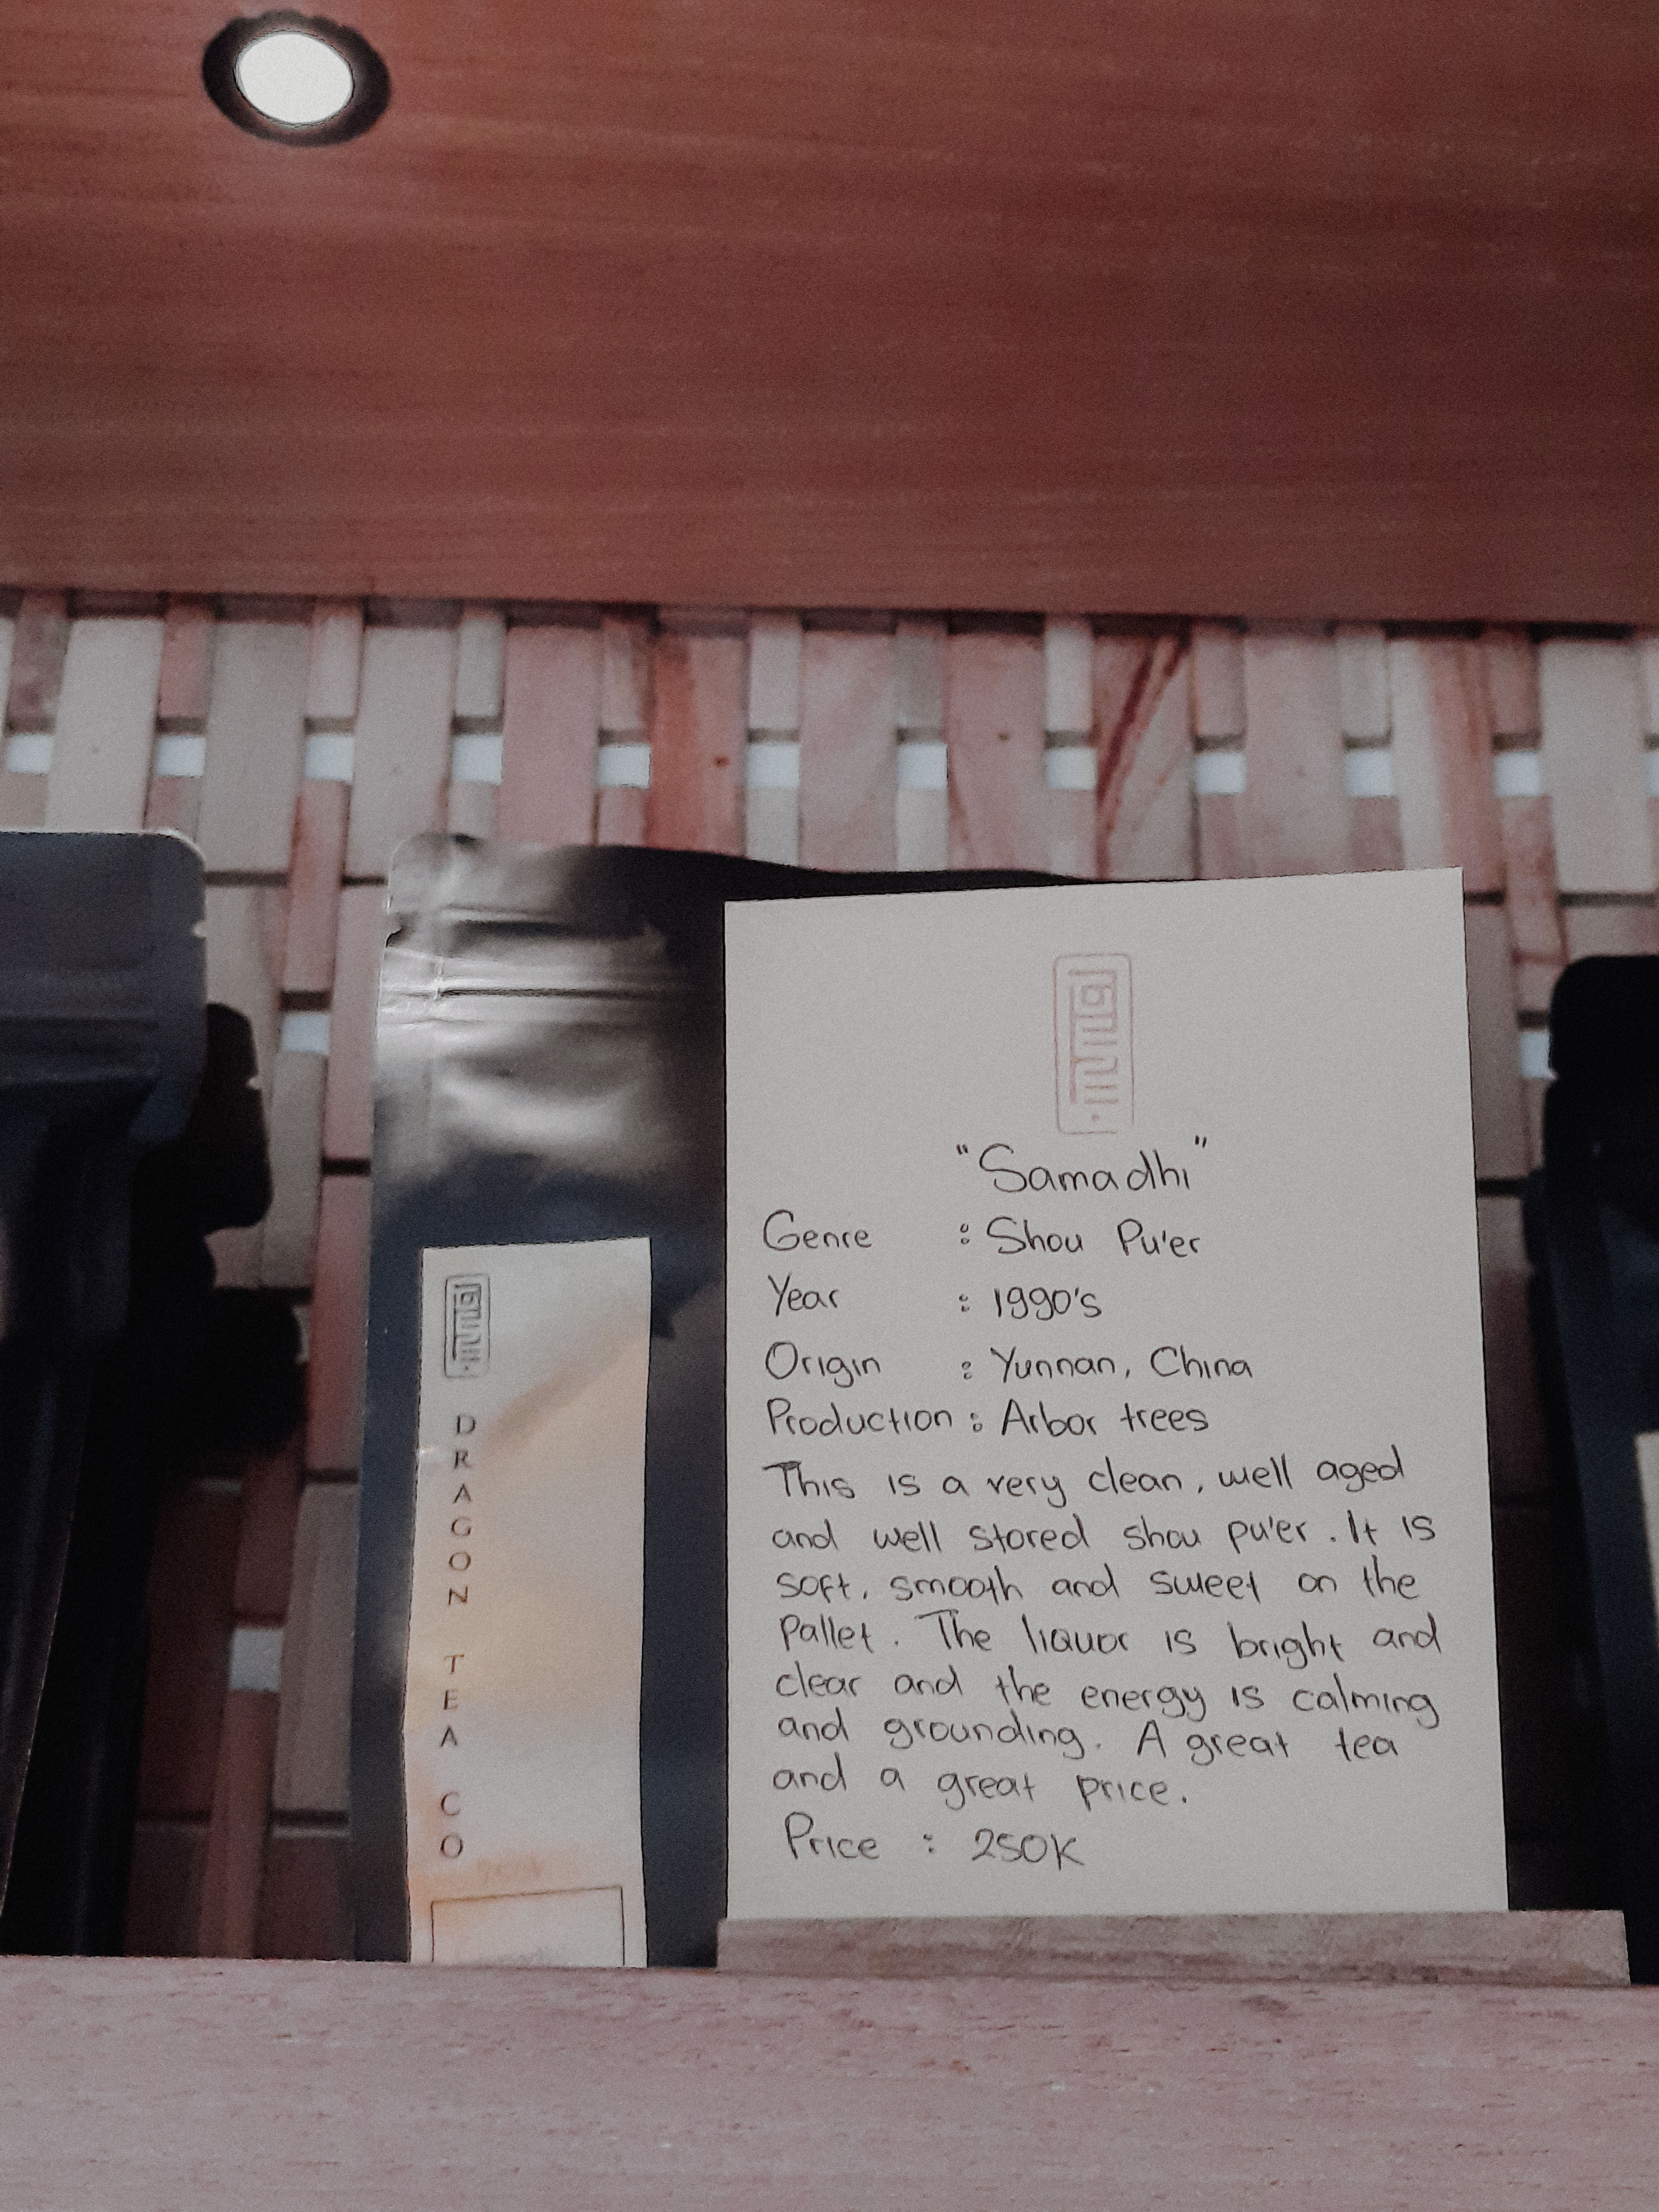 DRAGON TEA CO
"Samadhi"
Genre : Shou Pu'er
Year : 1990's
Origin : Yunnan, China
Production : Arbor trees
This is a very clean, well aged
and well stored shou pu'er. It is
soft, smooth and sweet on the
Pallet. The liquor is bright and
clear and the energy is calming
and grounding. A great tea
and a great price.
Price : 250K